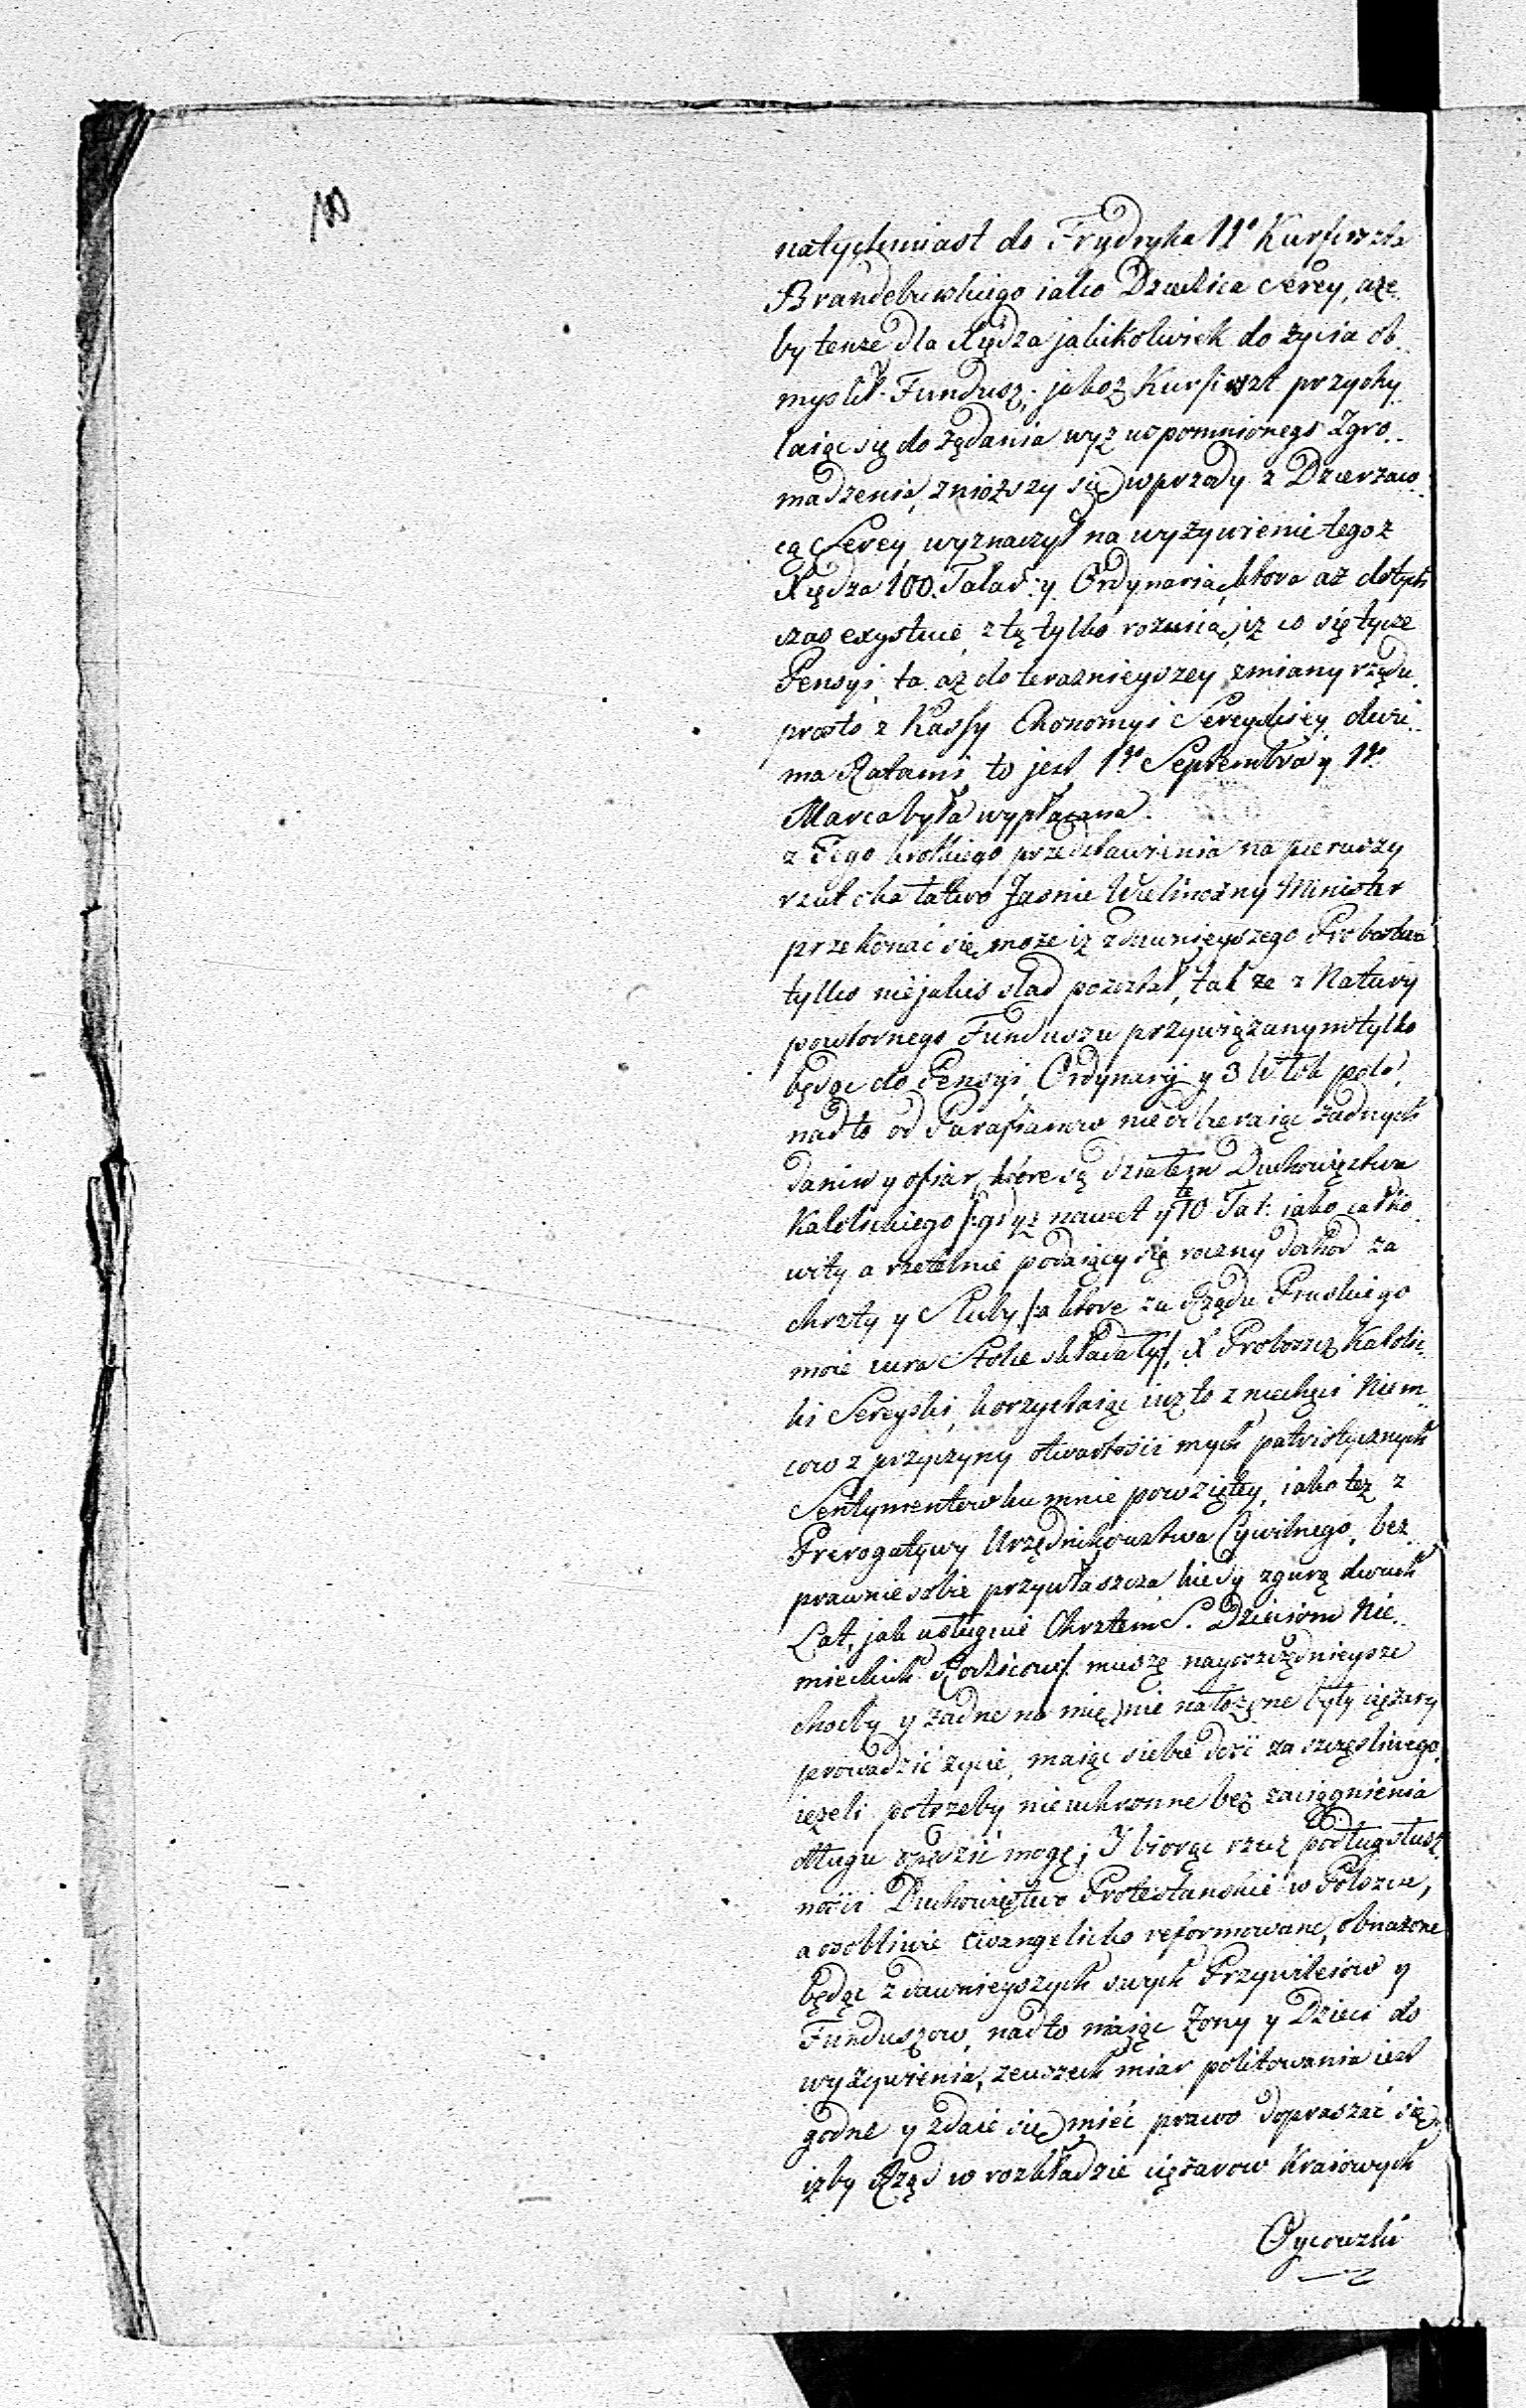 100
natychmiast do Frydryka IIo Kurfirszta
Brandeburskiego iako Dziedzica Serey, aże
by tenże dla Xiędza jakikolwiek do życia ob
myslił Fundusz; jakoż Kurfirszt przychy
laiąc się do żądania wyż wspomnionego Zgro
madzenia, znióższy się wprzody z Dzierzaw
cą Serey wyznaczył na wyżywienie tegoż
Xiędza 100. Talar: y Ordynarią, ktora aż dotych
czas exystuie, z tą tylko rożnicą, iż co się tycze
Pensyi, ta aż do teraznieyszey zmiany rządu
prosto z Kassy Ekonomyi Sereyskiey dwó
ma Ratami, to jest 1go Septembra y 1go
Marca była wypłacana.
z Tego krotkiego przedstawienia na pierwszy
rzut oka łatwo Jasnie Wielmożny Minister
przekonać się może iż z dawnieyszego Probostwa
tylko niejakiś slad pozostał, tak że z Natury
powtornego Funduszu przywiązanym tylko
będąc do Pensyi, Ordynaryi y 3 Włok pola,
nadto od Parafianow nieodbieraiąc żadnych
danin y ofiar, które są działem Duchowięstwa
Katolickiego /: gdyż nawet y te 10 Tal: iako całko
wity a rzetelnie podaiący się roczny dochod za
chrzty y Sluby /: a ktore za Rządu Pruskiego
moie iura Stolae składały /, X Proboszcz Katolic
ki Sereyski, korzystaiąc iuż to z niechęci Niem
cow z przyczyny otwartości mych patriotycznych
Sentymentow ku mnie powziętey, iako też z
Prerogatywy Urzędnikowstwa Cywilnego, bez
prawnie sobie przywłaszcza kiedy zgurą dwuch
Lat, jak usługuie Chrztem S. Dzieciom Nie
mieckich Rodzicow /. muszę nayoszczędnieysze
choćby y żadne na mię nie nałożone były ciężary
prowadzić życie, maiąc siebie dość za szczęsliwego,
ieżeli potrzeby nieuchronne bez zaciągnienia
długu opędzić mogę; I biorąc rzecz podług słusz
ności Duchowięstwo Protestanskie w Polszcze,
a osobliwie Ewangelicko reformowane, obnażone
będąc z dawnieyszych swych Przywileiow y
Funduszow, nadto maiąc Żony y Dzieci do
wyżywienia, zewszech miar politowania iest
godne y zdaie się mieć prawo dopraszać się,
iżby Rząd w rozkładzie ciężarow Kraiowych
Oycowski